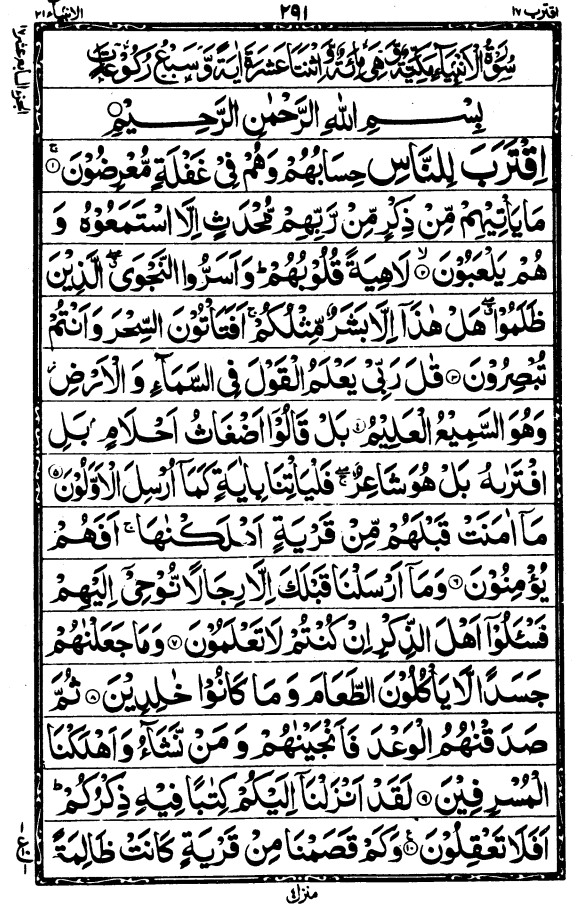 اقترب ١٧
٢٩١
الانبیاء ٢١
سُوْرَةُ الْاَنْبِيَآءِ مَكِّيَّةٌ وَّهِيَ مِائَةٌ وَّاثْنَتَا عَشْرَةَ اٰيَةً وَّسَبْعُ رُكُوْعَاتٍ
بِسْمِ اللّٰهِ الرَّحْمٰنِ الرَّحِيْمِ
اِقْتَرَبَ لِلنَّاسِ حِسَابُهُمْ وَهُمْ فِيْ غَفْلَةٍ مُّعْرِضُوْنَ ۚ۱
مَا يَاْتِيْهِمْ مِّنْ ذِكْرٍ مِّنْ رَّبِّهِمْ مُّحْدَثٍ اِلَّا اسْتَمَعُوْهُ وَ
هُمْ يَلْعَبُوْنَ ۙ۲ لَاهِيَةً قُلُوْبُهُمْ ؕ وَاَسَرُّوا النَّجْوَى ۖ الَّذِيْنَ
ظَلَمُوْا ۖ هَلْ هٰذَاۤ اِلَّا بَشَرٌ مِّثْلُكُمْ ۚ اَفَتَاْتُوْنَ السِّحْرَ وَاَنْتُمْ
تُبْصِرُوْنَ ۳ قٰلَ رَبِّيْ يَعْلَمُ الْقَوْلَ فِي السَّمَآءِ وَ الْاَرْضِ ز
وَهُوَ السَّمِيْعُ الْعَلِيْمُ ۴ بَلْ قَالُوْۤا اَضْغَاثُ اَحْلَامٍۭ بَلِ
افْتَرٰىهُ بَلْ هُوَ شَاعِرٌ ۖۚ فَلْيَاْتِنَا بِاٰيَةٍ كَمَاۤ اُرْسِلَ الْاَوَّلُوْنَ ۵
مَاۤ اٰمَنَتْ قَبْلَهُمْ مِّنْ قَرْيَةٍ اَهْلَكْنٰهَا ۚ اَفَهُمْ
يُؤْمِنُوْنَ ۶ وَمَاۤ اَرْسَلْنَا قَبْلَكَ اِلَّا رِجَالًا نُّوْحِيْۤ اِلَيْهِمْ
فَسْـَٔلُوْۤا اَهْلَ الذِّكْرِ اِنْ كُنْتُمْ لَا تَعْلَمُوْنَ ۷ وَمَا جَعَلْنٰهُمْ
جَسَدًا لَّا يَاْكُلُوْنَ الطَّعَامَ وَ مَا كَانُوْا خٰلِدِيْنَ ۸ ثُمَّ
صَدَقْنٰهُمُ الْوَعْدَ فَاَنْجَيْنٰهُمْ وَ مَنْ نَّشَآءُ وَ اَهْلَكْنَا
الْمُسْرِفِيْنَ ۹ لَقَدْ اَنْزَلْنَاۤ اِلَيْكُمْ كِتٰبًا فِيْهِ ذِكْرُكُمْ ؕ
اَفَلَا تَعْقِلُوْنَ ۱۰ وَكَمْ قَصَمْنَا مِنْ قَرْيَةٍ كَانَتْ ظَالِمَةً
منزل
الجزء السابع عشر ١٧